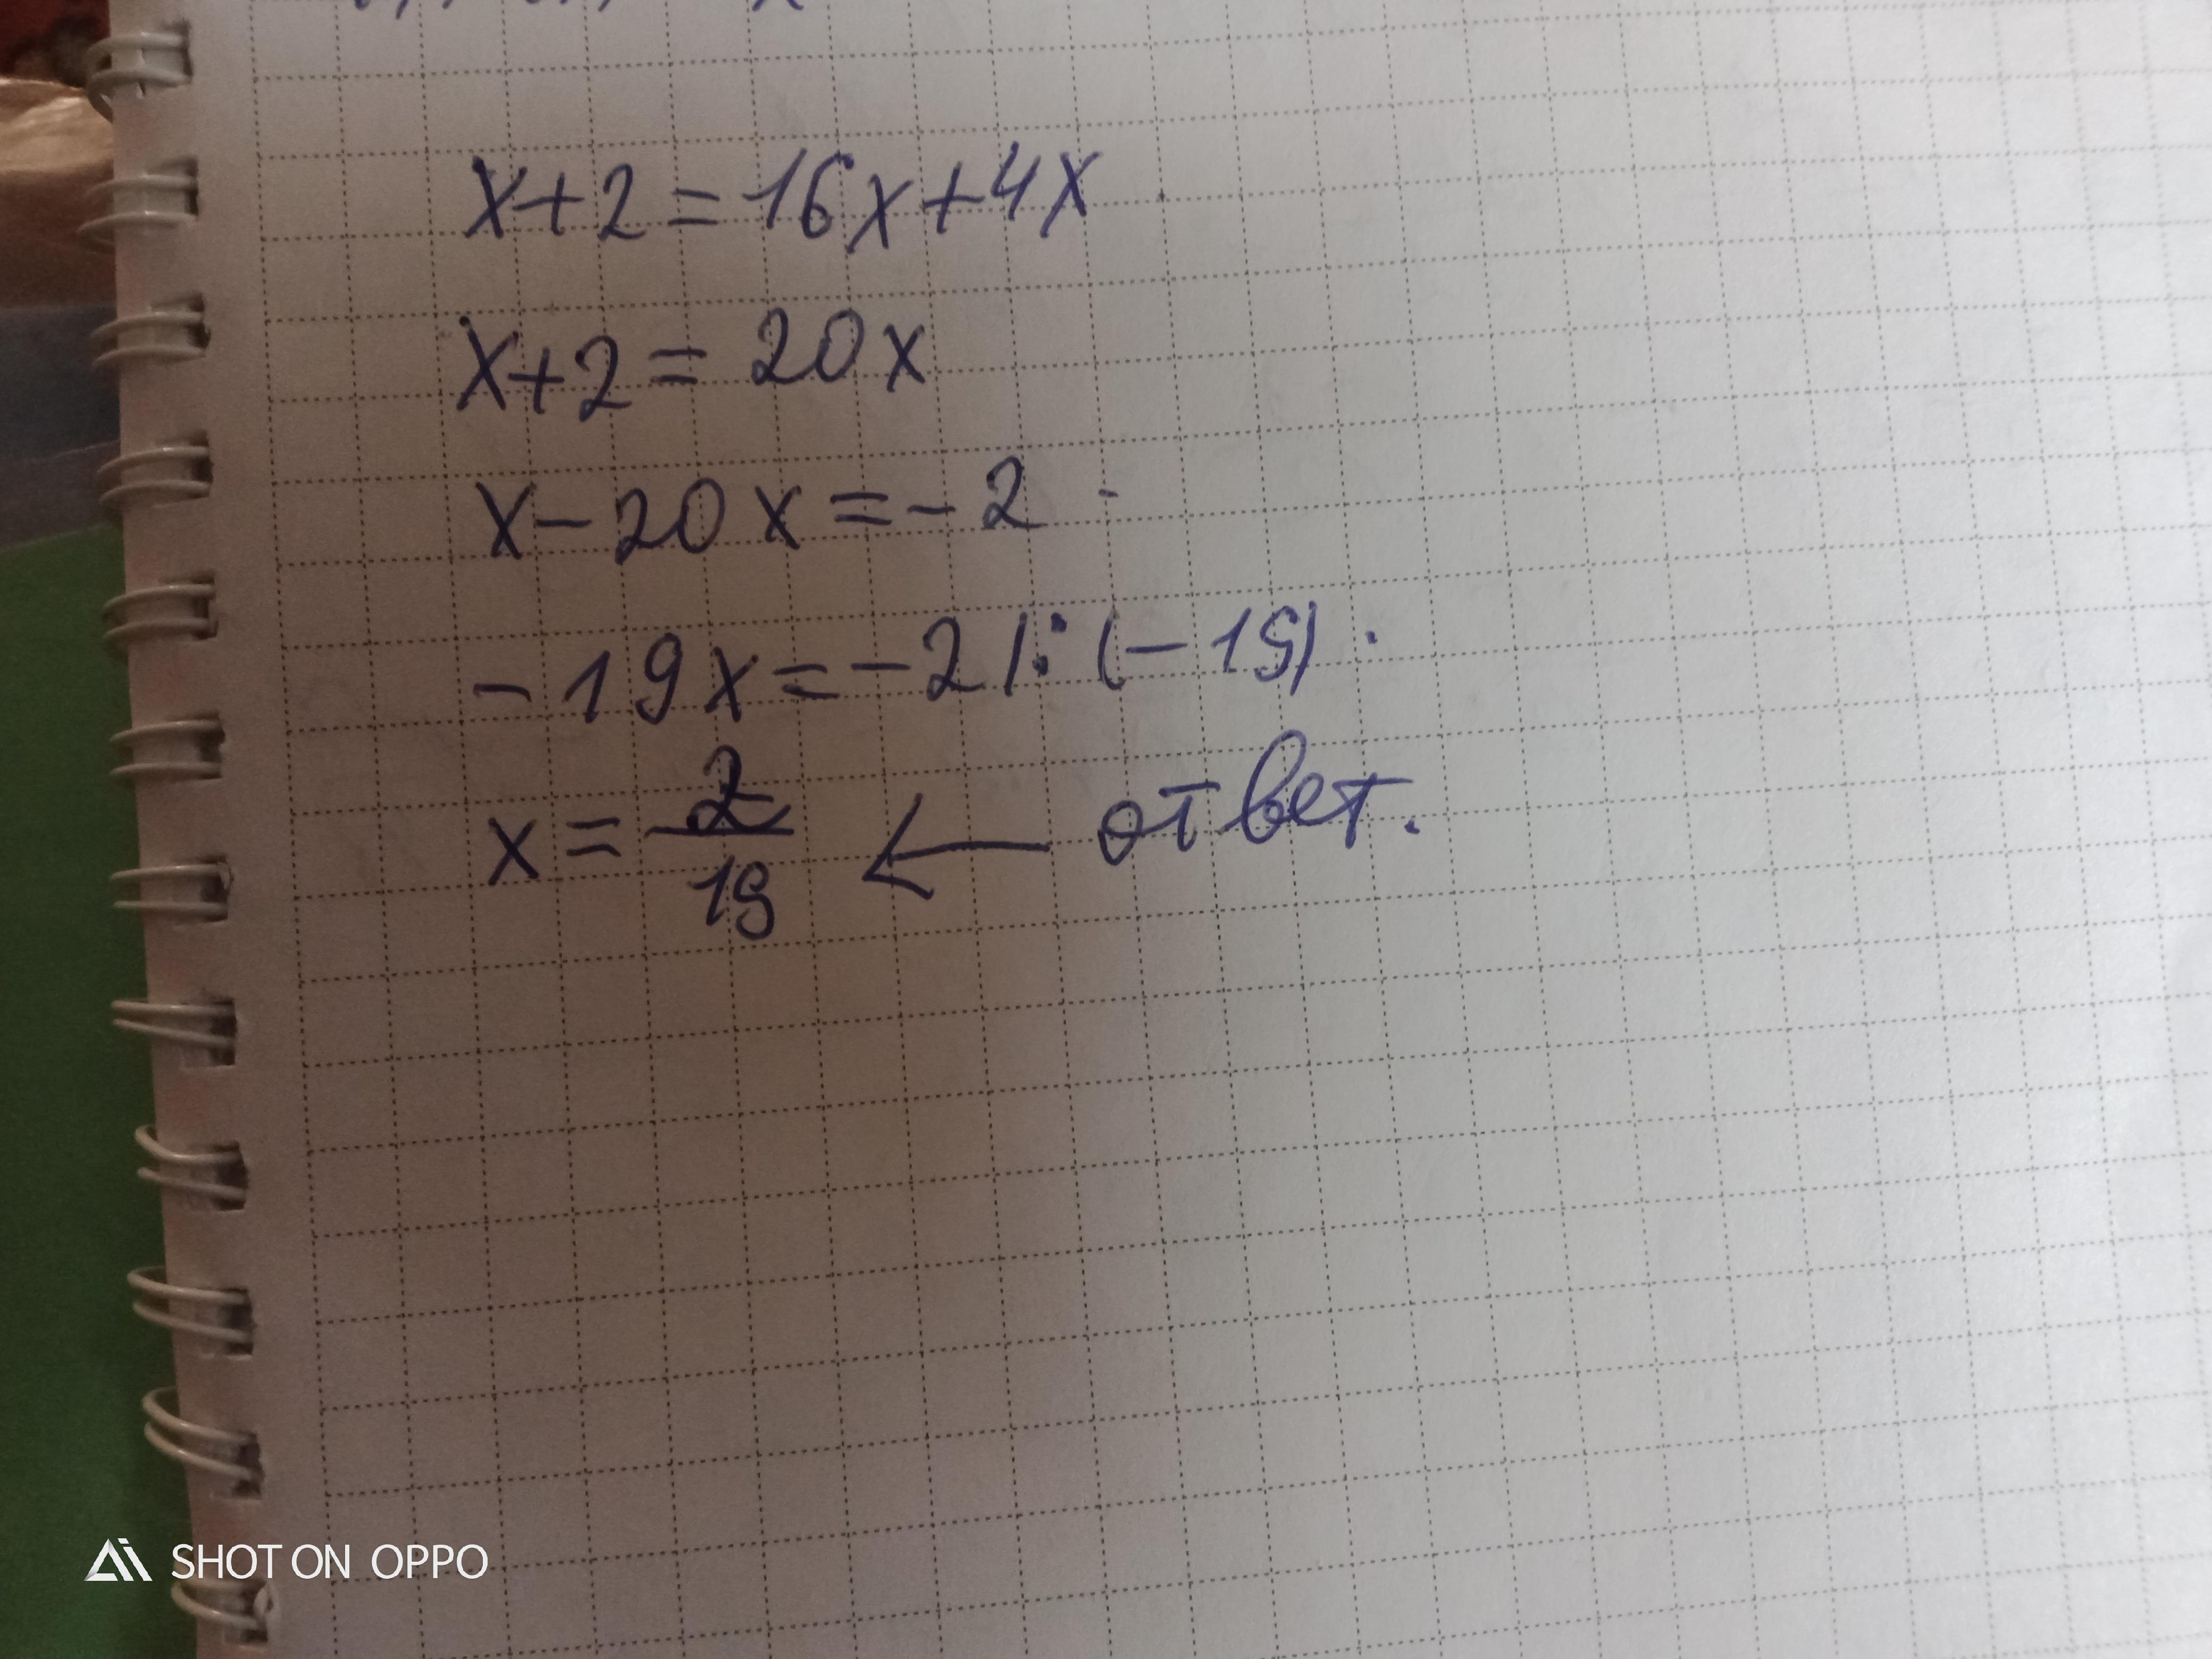 x+2=16x+4x
x+2=20x
x-20x=-2
-19x=-2 |:(-19)
x=2/19 ← ответ.
SHOT ON OPPO